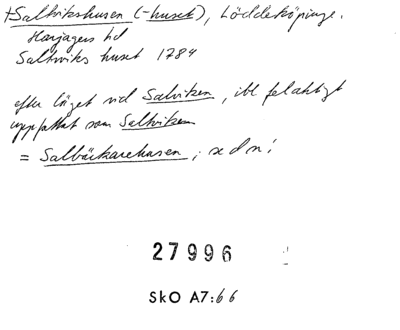 +Saltvikshusen (-huset), Löddeköpinge.
Harjagers hd
Saltviks huset 1784
efter läget vid Salviken, ibl felaktigt
uppfattat som Saltviken
= Salbäckarehusen, se d n!
27996
SkO A7:66